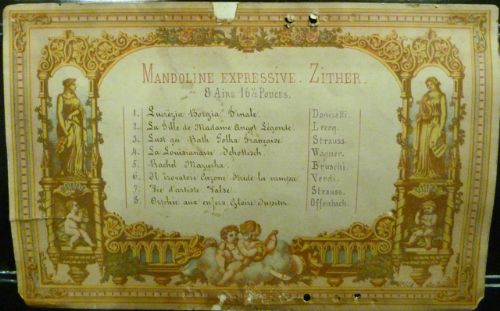 MANDOLINE EXPRESSIVE. ZITHER.
8 AIRS 16½ POUCES.
1. Lucrézia Borgia Finale. Donizetti.
2. La Fille de Madame Angot Légende. Lecoq.
3. Lust ger Rath Polka Française Strauss.
4. La Louisianaise Schottisch. Wagner.
5. Rachel Mazurka. Bruschi.
6. Il Trovatore Stride la vampa. Verdi.
7. Vie d'artiste Valse. Strauss.
8. Orphée aux enfers, Gloire Jupiter. Offenbach.